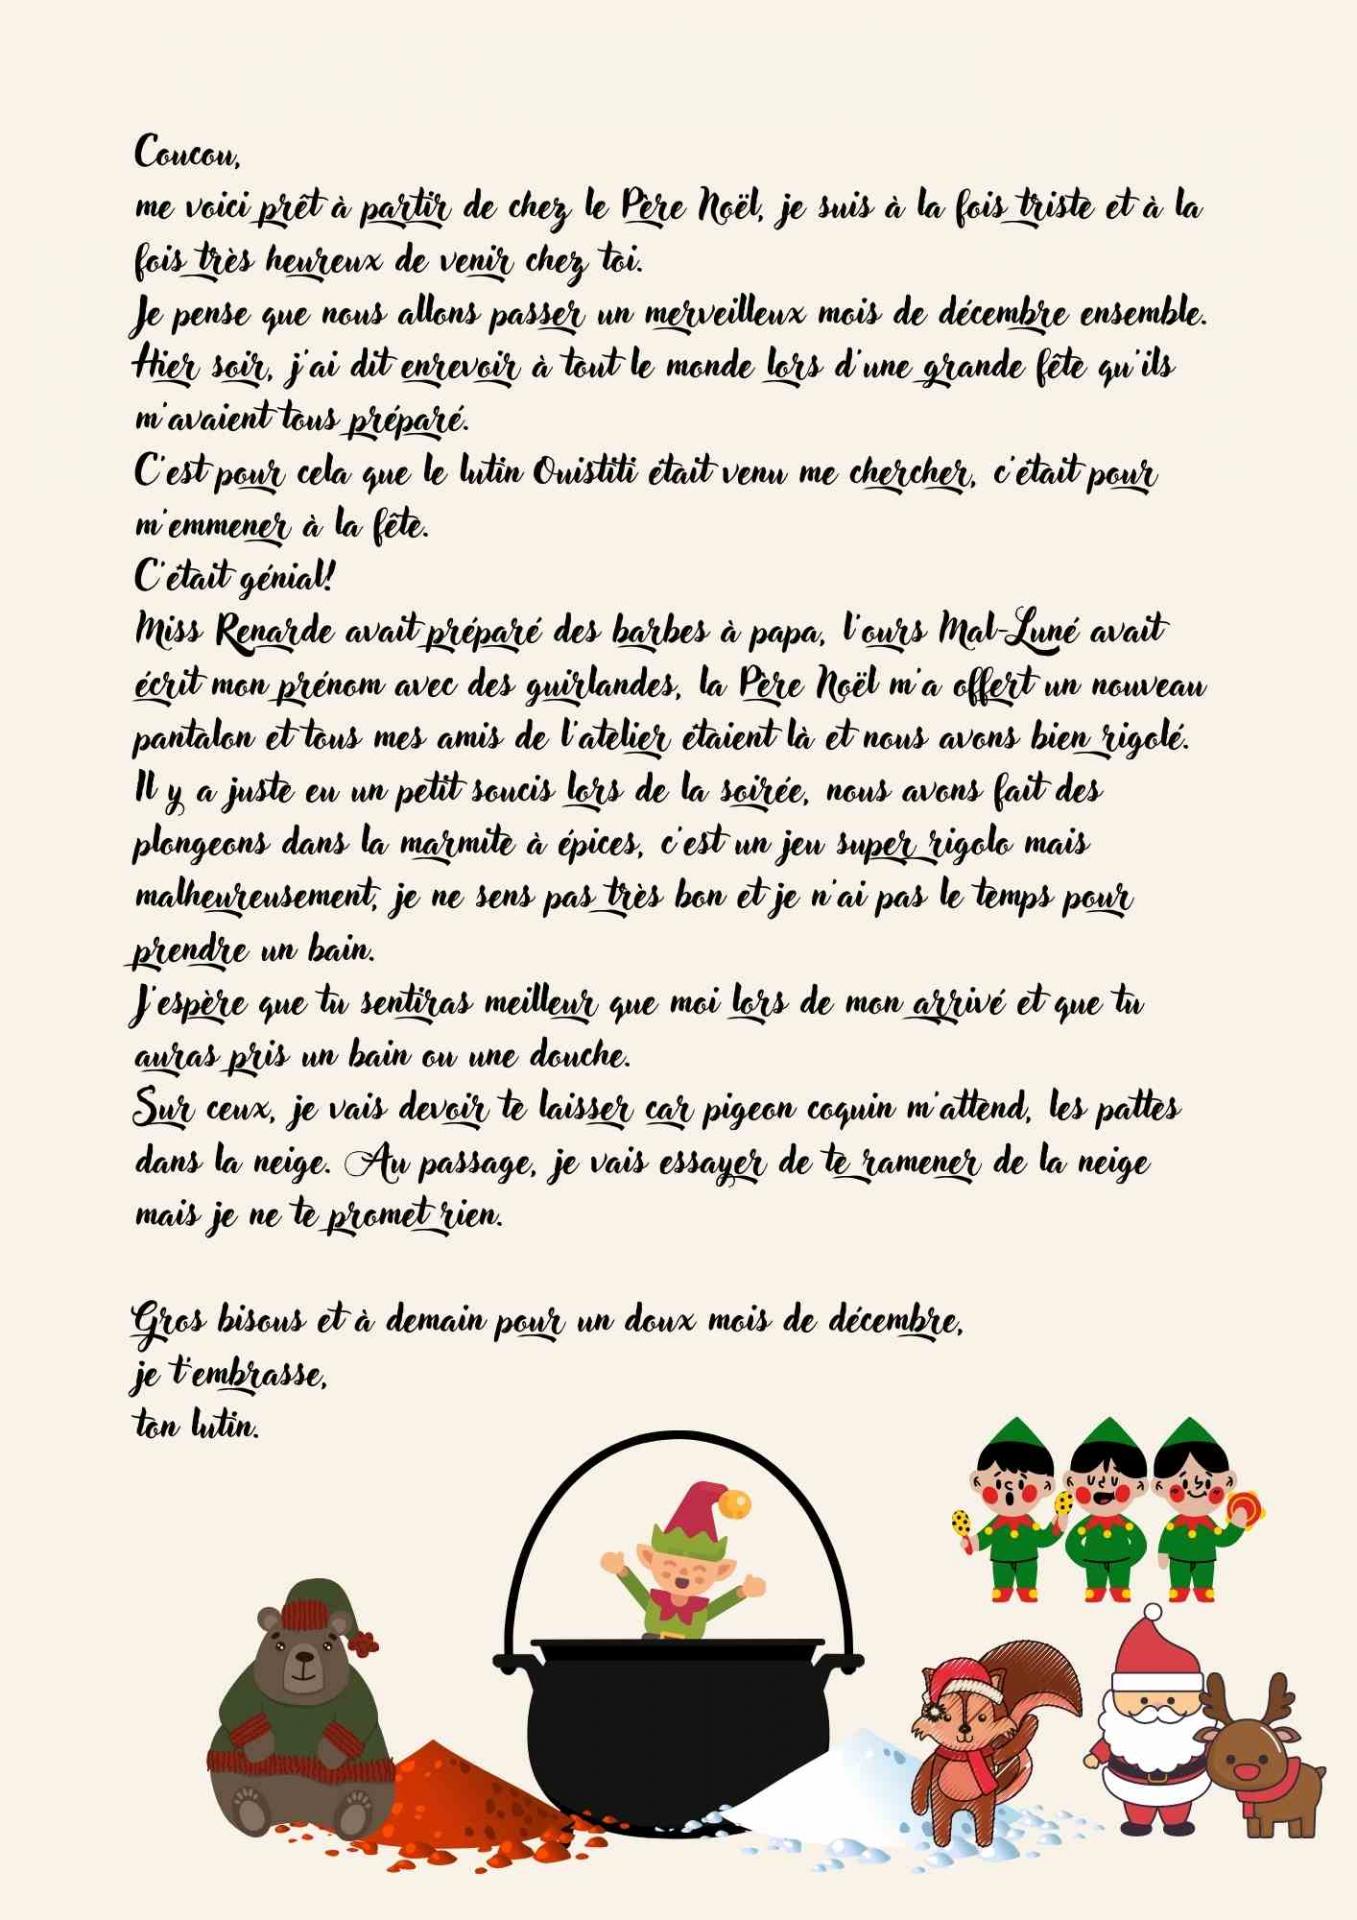 Coucou,
me voici prêt à partir de chez le Père Noël, je suis à la fois triste et à la
fois très heureux de venir chez toi.
Je pense que nous allons passer un merveilleux mois de décembre ensemble.
Hier soir, j'ai dit enrevoir à tout le monde lors d'une grande fête qu'ils
m'avaient tous préparé.
C'est pour cela que le lutin Ouistiti était venu me chercher, c'était pour
m'emmener à la fête.
C'était génial!
Miss Renarde avait préparé des barbes à papa, l'ours Mal-Luné avait
écrit mon prénom avec des guirlandes, la Père Noël m'a offert un nouveau
pantalon et tous mes amis de l'atelier étaient là et nous avons bien rigolé.
Il y a juste eu un petit soucis lors de la soirée, nous avons fait des
plongeons dans la marmite à épices, c'est un jeu super rigolo mais
malheureusement, je ne sens pas très bon et je n'ai pas le temps pour
prendre un bain.
J'espère que tu sentiras meilleur que moi lors de mon arrivé et que tu
auras pris un bain ou une douche.
Sur ceux, je vais devoir te laisser car pigeon coquin m'attend, les pattes
dans la neige. Au passage, je vais essayer de te ramener de la neige
mais je ne te promet rien.
Gros bisous et à demain pour un doux mois de décembre,
je t'embrasse,
ton lutin.